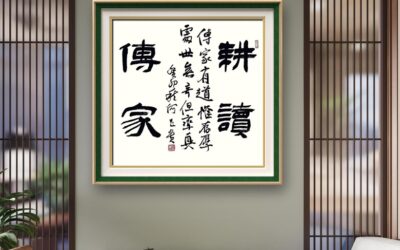 耕讀
傳家有道惟存厚
處世無奇但率真
癸卯秋
傳家